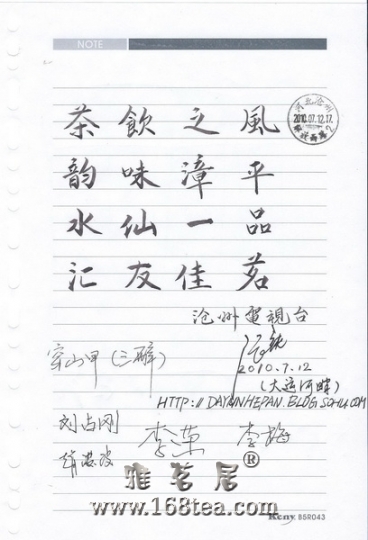 NOTE
茶飲之風
韵味漳平
水仙一品
汇友佳茗
河北沧州
2010.07.12.17
沧州電視台
2010.7.12
(大运河畔)
HTTP://DAYUNHEPAN.BLOG.SOHU.COM
穿山甲(三醉)
刘占刚
李梅
雅茗居®
www.168tea.com
Keny B5R043